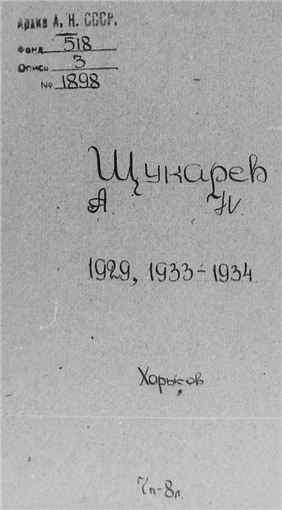 Архив А. Н. СССР.
Фонд 518
Опись 3
№ 1898
Щукарев
А. Н.
1929, 1933-1934
Харьков
7п-8л.